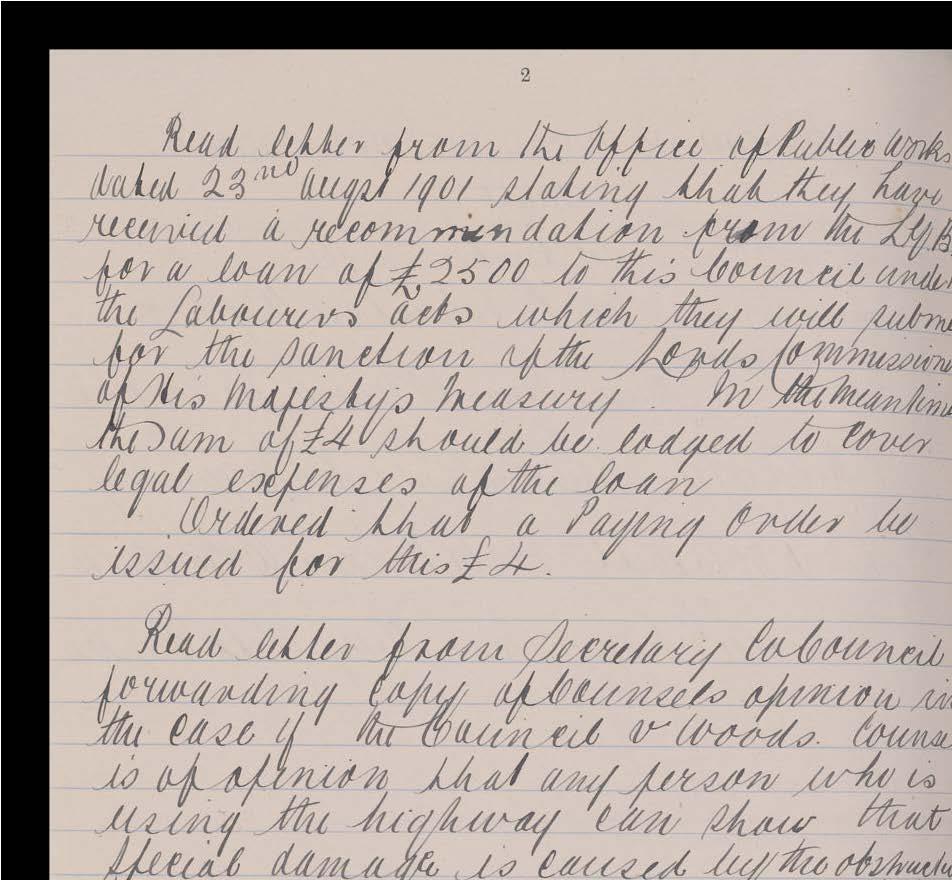 2
Read letter from the Office of Public Works
dated 23nd Augst 1901 stating that they have
received a recommendation from the LGB
for a loan of £2500 to this Council under
the Labourers acts which they will subm
for the sanction of the Lords Commissione
of His Majesty's Treasury. In the meantime
the Sum of £4 should be lodged to cover
legal expenses of the loan
Ordered that a Paying Order be
issued for this £4.
Read letter from Secretary Co Council
forwarding Copy of Counsels opinion in
the case of the Council v Woods. Counse
is of opinion that any person who is
using the highway can show that
special damage is caused by the obstructi